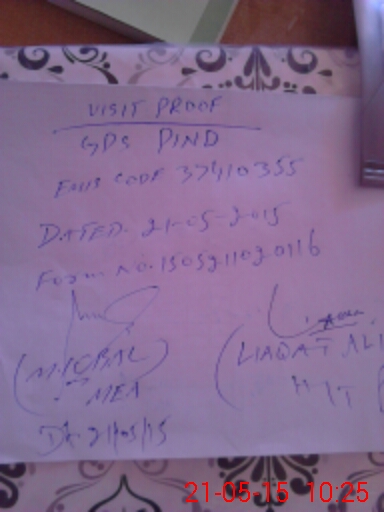 VISIT PROOF
GPS PIND
EMIS CODE 37410355
DATED. 21-05-2015
Form No. 1505211020116
(M. IQBAL)
MEA
Dt. 21/05/15
(LIAQAT ALI
21-05-15 10:25